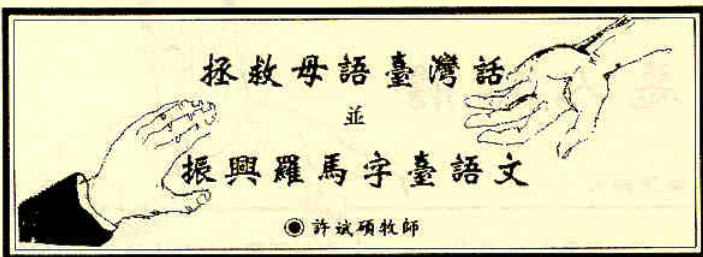 拯救母語臺灣話
並
振興羅馬字臺語文
◉許斌碩牧師